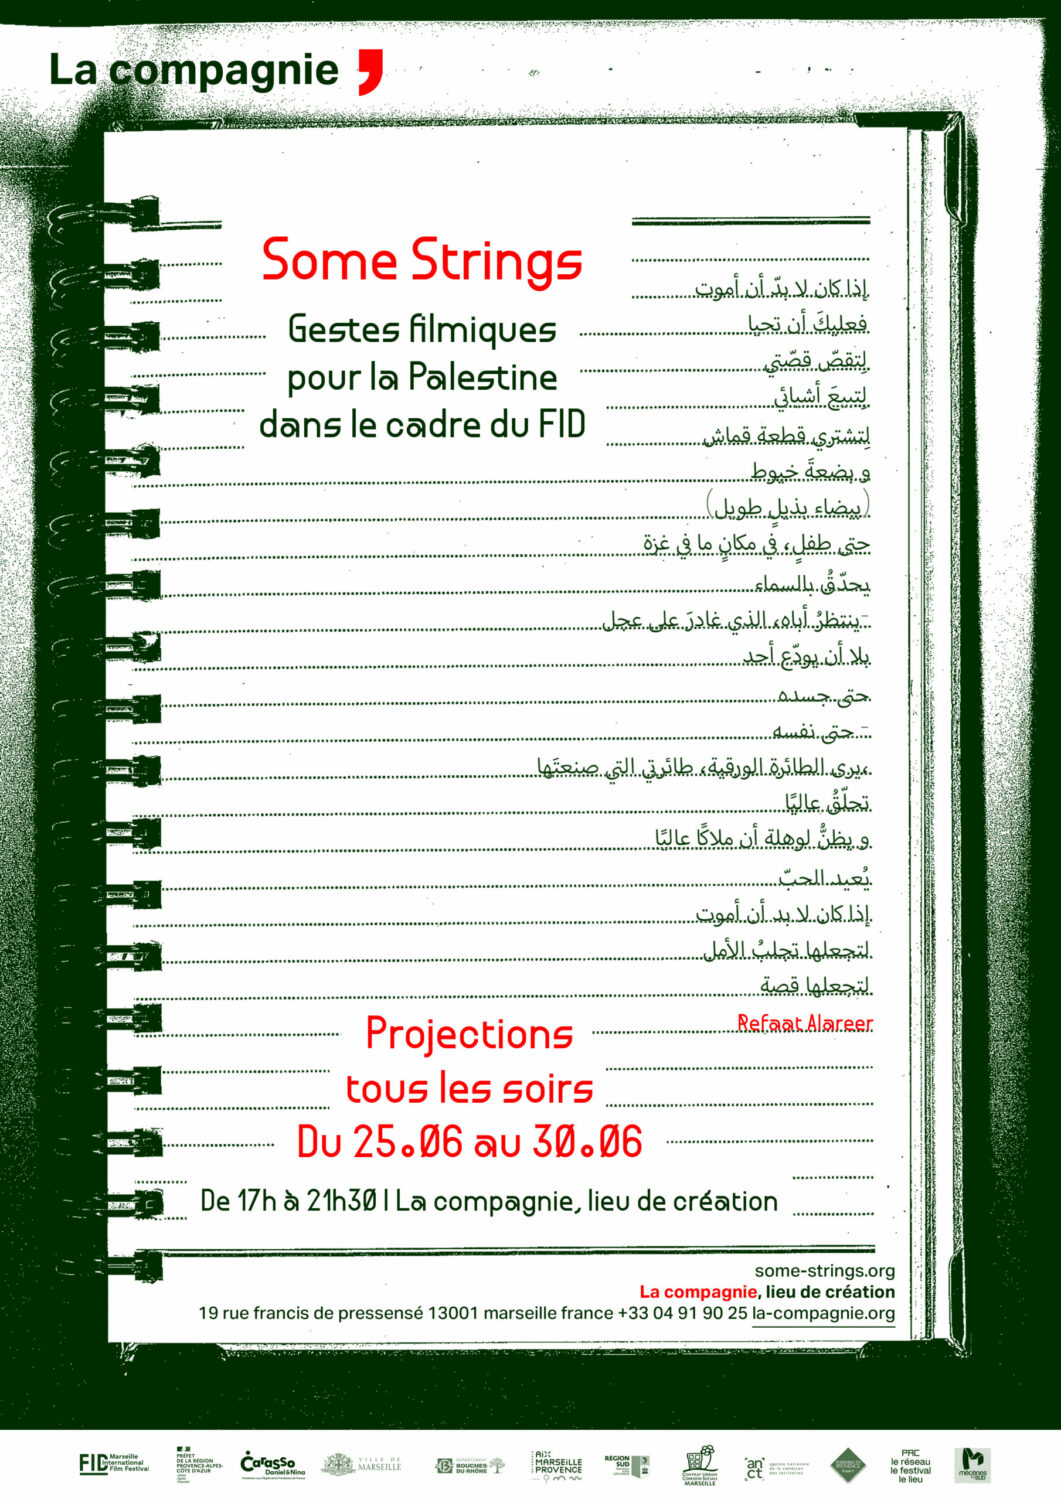 La compagnie ,
Some Strings
Gestes filmiques
pour la Palestine
dans le cadre du FID
إذا كان لا بدّ أن أموت
فعليكَ أن تحيا
لِتقصّ قصّتي
لِتبيعَ أشيائي
لِتشتري قطعة قماش
و بضعةَ خيوط
(بيضاء بذيلٍ طويل)
حتى طفلٍ، في مكانٍ ما في غزة
يحدّقُ بالسماء
-ينتظرُ أباه، الذي غادرَ على عجل
بلا أن يودّع أحد
حتى جسده
- حتى نفسه
،يرى الطائرة الورقية، طائرتي التي صنعتَها
تحلّقُ عاليًا
و يظنُّ لوهلة أن ملاكًا عاليًا
يُعيد الحبّ
إذا كان لا بد أن أموت
لتجعلها تجلبُ الأمل
لتجعلها قصة
Refaat Alareer
Projections
tous les soirs
Du 25.06 au 30.06
De 17h à 21h30 | La compagnie, lieu de création
some-strings.org
La compagnie, lieu de création
19 rue francis de pressensé 13001 marseille france +33 04 91 90 25 la-compagnie.org
FID Marseille International Film Festival
PRÉFET DE LA RÉGION PROVENCE-ALPES-CÔTE D'AZUR
Carasso Daniel & Nina
VILLE DE MARSEILLE
DÉPARTEMENT BOUCHES DU RHÔNE
AIX MARSEILLE PROVENCE
REGION SUD
CONTRAT URBAIN COHESION SOCIALE MARSEILLE
anct agence nationale de la cohésion des territoires
PAC le réseau le festival le lieu
mécènes du sud